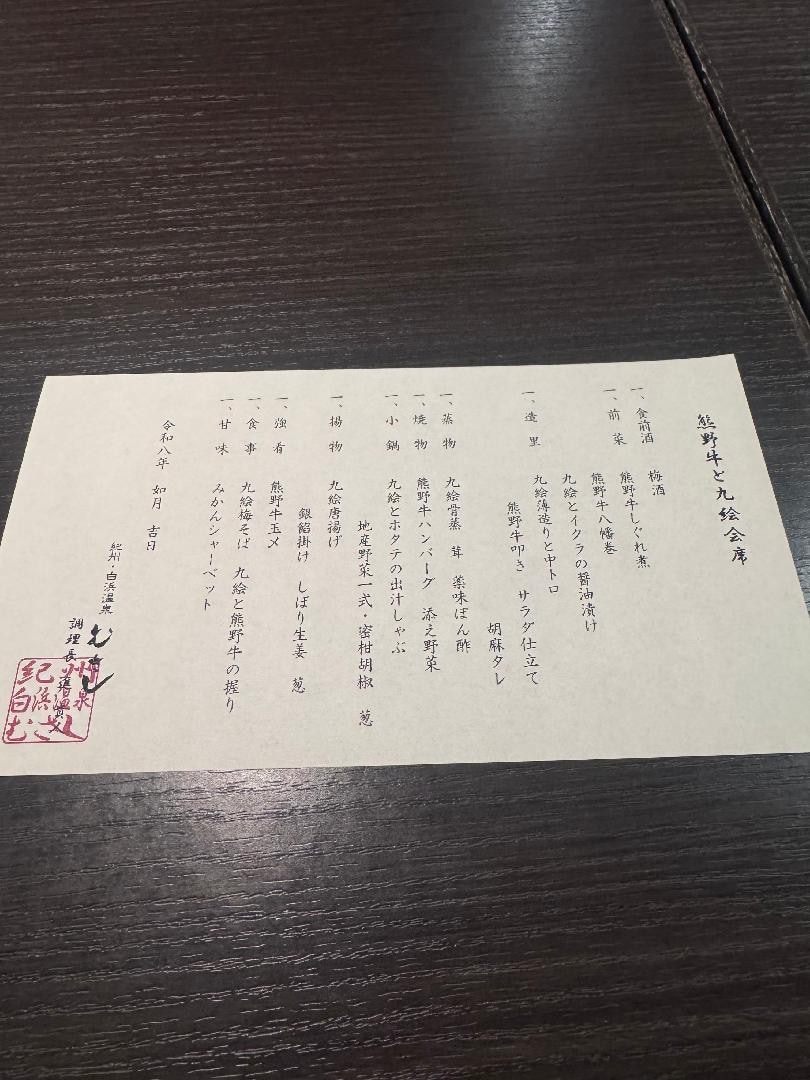 熊野牛と九絵会席
一、食前酒　梅酒
一、前菜　熊野牛しぐれ煮
熊野牛八幡巻
九絵とイクラの醤油漬け
一、造里　九絵薄造りと中トロ
熊野牛叩き　サラダ仕立て
胡麻タレ
一、蒸物　九絵骨蒸　茸　薬味ぽん酢
一、焼物　熊野牛ハンバーグ　添え野菜
一、小鍋　九絵とホタテの出汁しゃぶ
地産野菜一式・蜜柑胡椒　葱
一、揚物　九絵唐揚げ
銀餡掛け　しぼり生姜　葱
一、強肴　熊野牛玉〆
一、食事　九絵梅そば　九絵と熊野牛の握り
一、甘味　みかんシャーベット
令和八年　如月　吉日
紀州・白浜温泉
むさし
調理長
紀州
白浜温泉
むさし